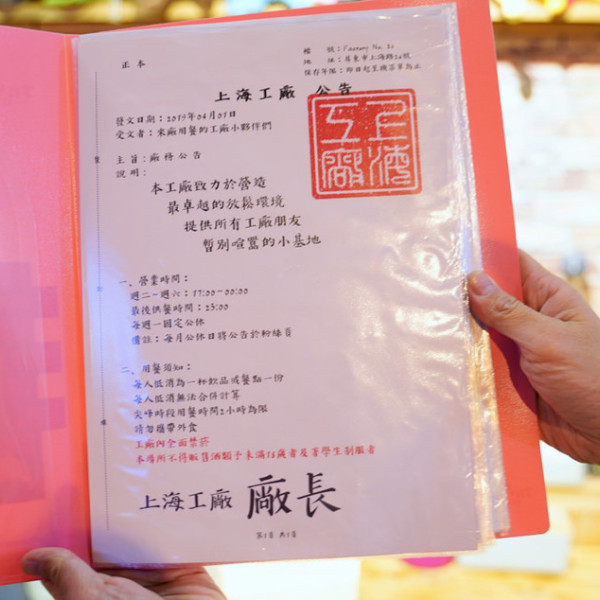 正本
檔 號：Factory No. 26
地 址：屏東市上海路26號
保存年限：即日起至機器單為止
上海工廠 公告
上海工廠
發文日期：2019年04月01日
受文者：來廠用餐的工廠小夥伴們
主旨：廠務公告
說明：
本工廠致力於營造
最卓越的放鬆環境
提供所有工廠朋友
暫別喧囂的小基地
一、營業時間：
週二-週六：17:00-00:00
最後供餐時間：23:00
每週一固定公休
備註：每月公休日將公告於粉絲頁
二、用餐須知：
每人低消為一杯飲品或餐點一份
每人低消無法合併計算
尖峰時段用餐時間2小時為限
請勿攜帶外食
工廠內全面禁菸
本場所不得販售酒類予未滿18歲者及著學生制服者
上海工廠 廠長